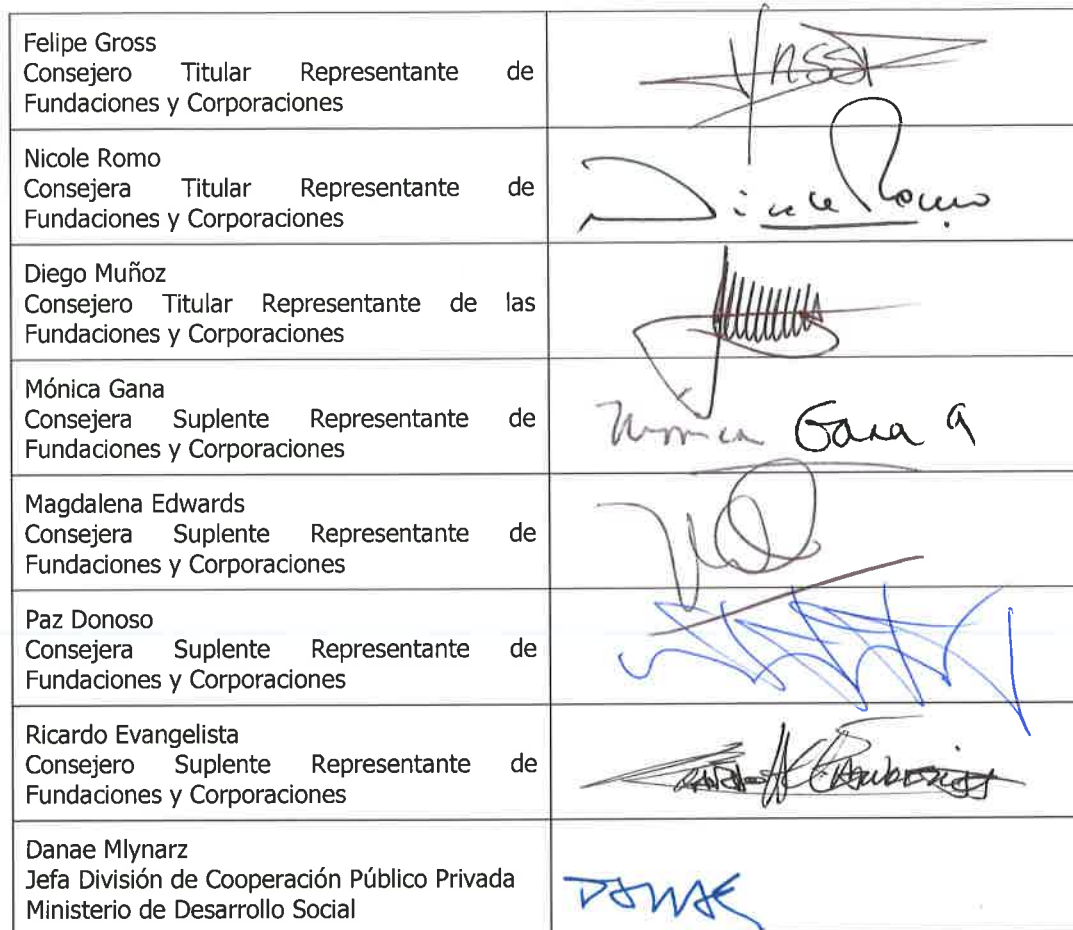 Felipe Gross
Consejero Titular Representante de
Fundaciones y Corporaciones
Nicole Romo
Consejera Titular Representante de
Fundaciones y Corporaciones
Nicole Romo
Diego Muñoz
Consejero Titular Representante de las
Fundaciones y Corporaciones
Mónica Gana
Consejera Suplente Representante de
Fundaciones y Corporaciones
Monica Gana G
Magdalena Edwards
Consejera Suplente Representante de
Fundaciones y Corporaciones
Paz Donoso
Consejera Suplente Representante de
Fundaciones y Corporaciones
Ricardo Evangelista
Consejero Suplente Representante de
Fundaciones y Corporaciones
Danae Mlynarz
Jefa División de Cooperación Público Privada
Ministerio de Desarrollo Social
DANAE